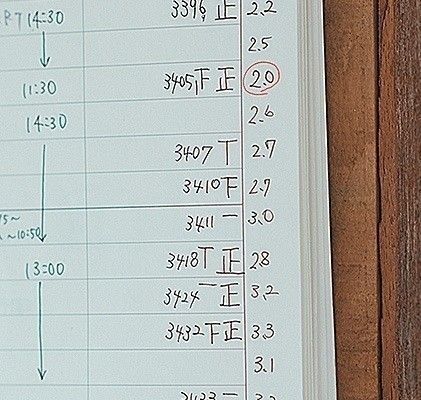 14:30 3396 正 2.2
2.5
11:30 3405 下 正 2.0
14:30 2.6
3407 丅 2.7
3410 下 2.7
3411 一 3.0
~10:50
13:00 3418 丅 正 2.8
3424 一 正 3.2
3432 下 正 3.3
3.1